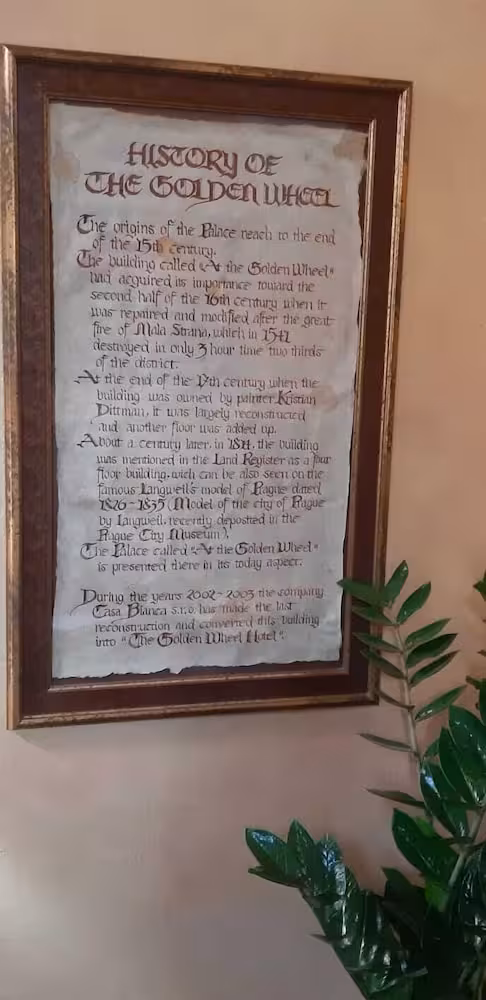 HISTORY OF
THE GOLDEN WHEEL
The origins of the Palace reach to the end
of the 15th century.
The building called „At the Golden Wheel“
had acquired its importance toward the
second half of the 16th century when it
was repaired and modified after the great
fire of Mala Strana, which in 1541
destroyed in only 3 hour time two thirds
of the district.
At the end of the 17th century when the
building was owned by painter Kristian
Dittman, it was largely reconstructed
and another floor was added up.
About a century later, in 1811, the building
was mentioned in the Land Register as a four
floor building, wich can be also seen on the
famous Langweil's model of Prague dated
1826-1835 (Model of the city of Prague
by Langweil, recently deposited in the
Prague City Museum).
The Palace called „At the Golden Wheel“
is presented there in its today aspect.
During the years 2002-2003 the company
Casa Bianca s.r.o. has made the last
reconstruction and converted this building
into "The Golden Wheel Hotel".